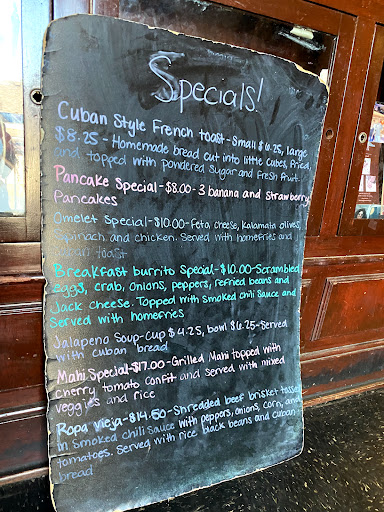 Specials!
Cuban Style French toast-Small $6.25, large
$8.25 - Homemade bread cut into little cubes, fried,
and topped with powdered sugar and fresh fruit
Pancake Special-$8.00- 3 banana and strawberry
Pancakes
Omelet Special-$10.00-feta cheese, kalamata olives,
spinach and chicken. Served with homefries and
toast
Breakfast burrito Special-$10.00-Scrambled
eggs, crab, onions, peppers, refried beans and
Jack cheese. Topped with smoked chili sauce and
served with homefries
Jalapeno Soup-Cup $4.25, bowl $6.25-Served
with cuban bread
Mahi Special-$17.00-Grilled Mahi topped with
cherry tomato confit and served with mixed
veggies and rice
Ropa vieja-$14.50-Shredded beef brisket tossed
in smoked chili sauce with peppers, onions, corn, and
tomatoes. Served with rice, black beans and cuban
bread